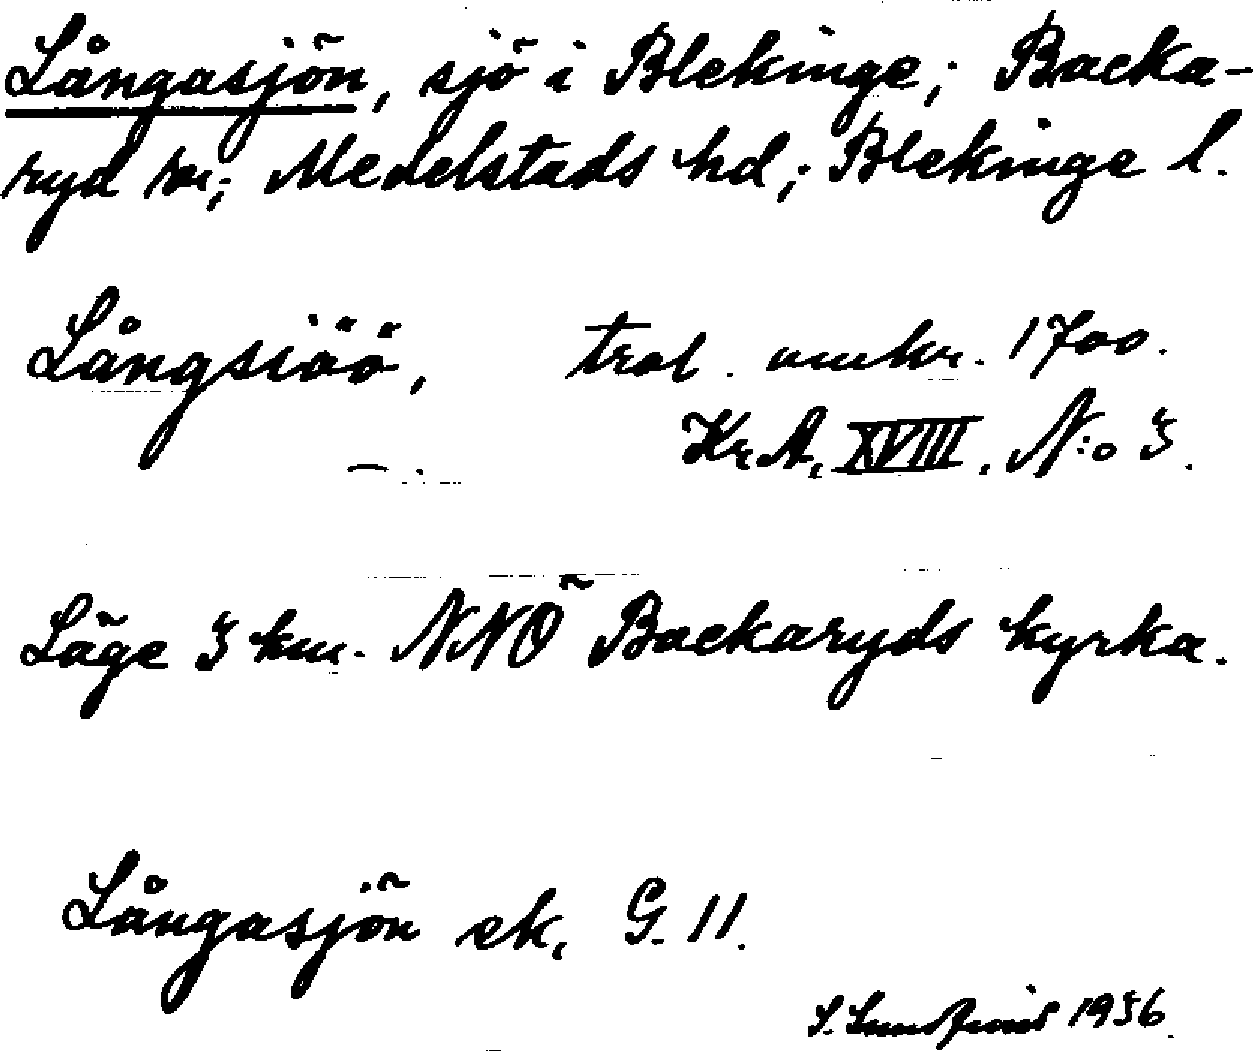 Långasjön, sjö i Blekinge; Backa-
ryd sn; Medelstads hd; Blekinge l.
Långsiöö, trol. omkr. 1700.
Kr.A. XVIII. N:o 3.
Läge 3 km. NNO Backaryds kyrka.
Långasjön ek. G. 11.
S. 1956.